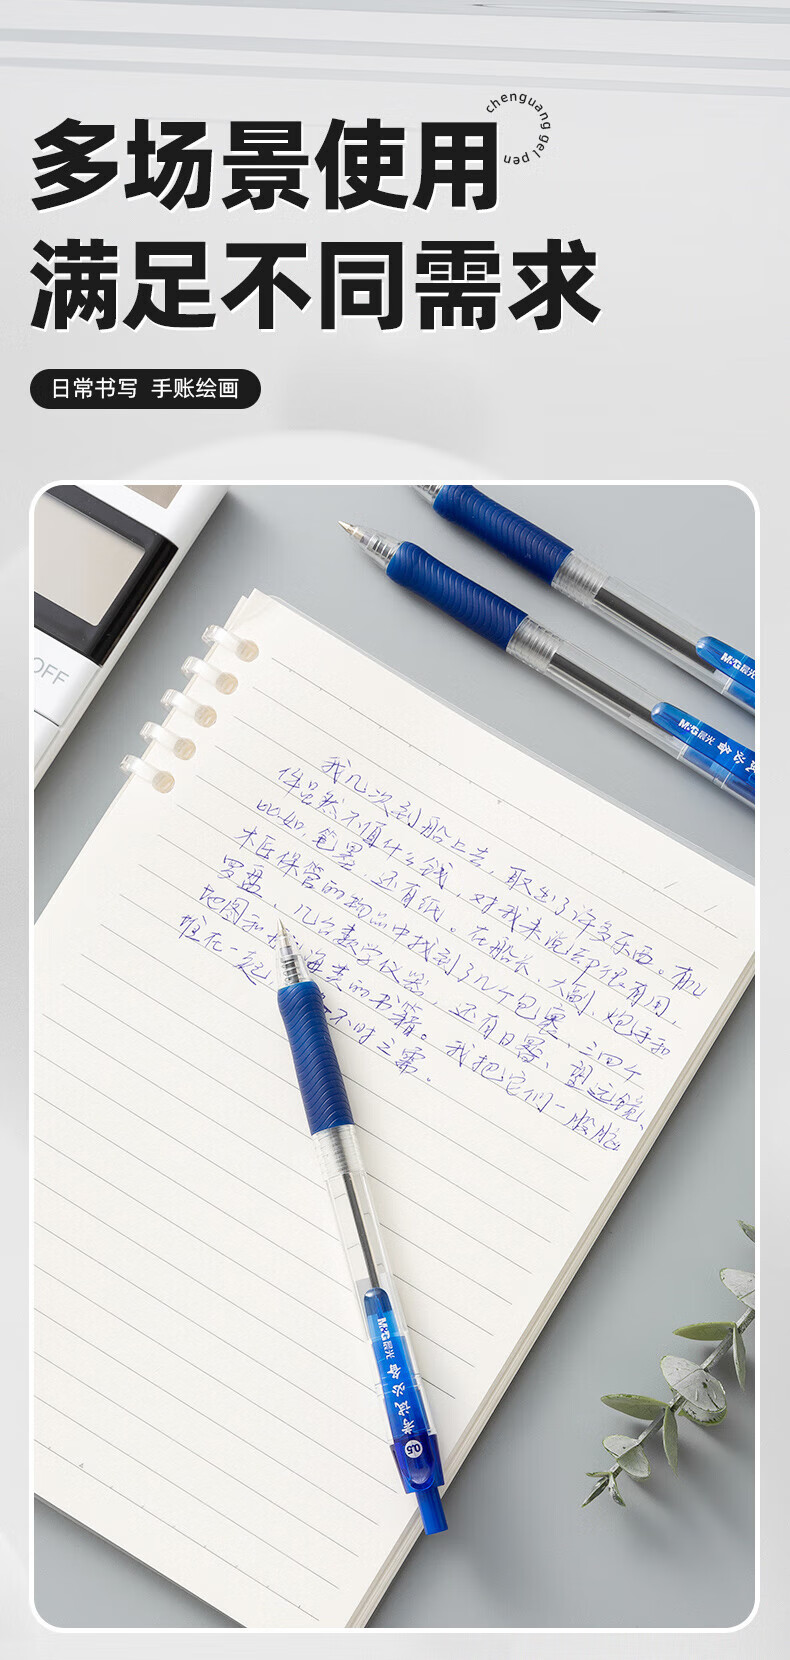 chenguang gel pen
多场景使用
满足不同需求
日常书写 手账绘画
OFF
M&G晨光
M&G晨光 备必试
我几次到船上去，取出了许多东西。有几
件虽然不值什么钱，对我来说却很有用，
比如，笔墨，还有纸。在船长、大副、炮手和
木匠保管的物品中找到了几个包裹、三四个
罗盘、几台数学仪器，还有日晷、望远镜、
地图和 海类的书籍。我把它们一股脑
堆在一起 不时之需。
M&G晨光 考试必备
0.5